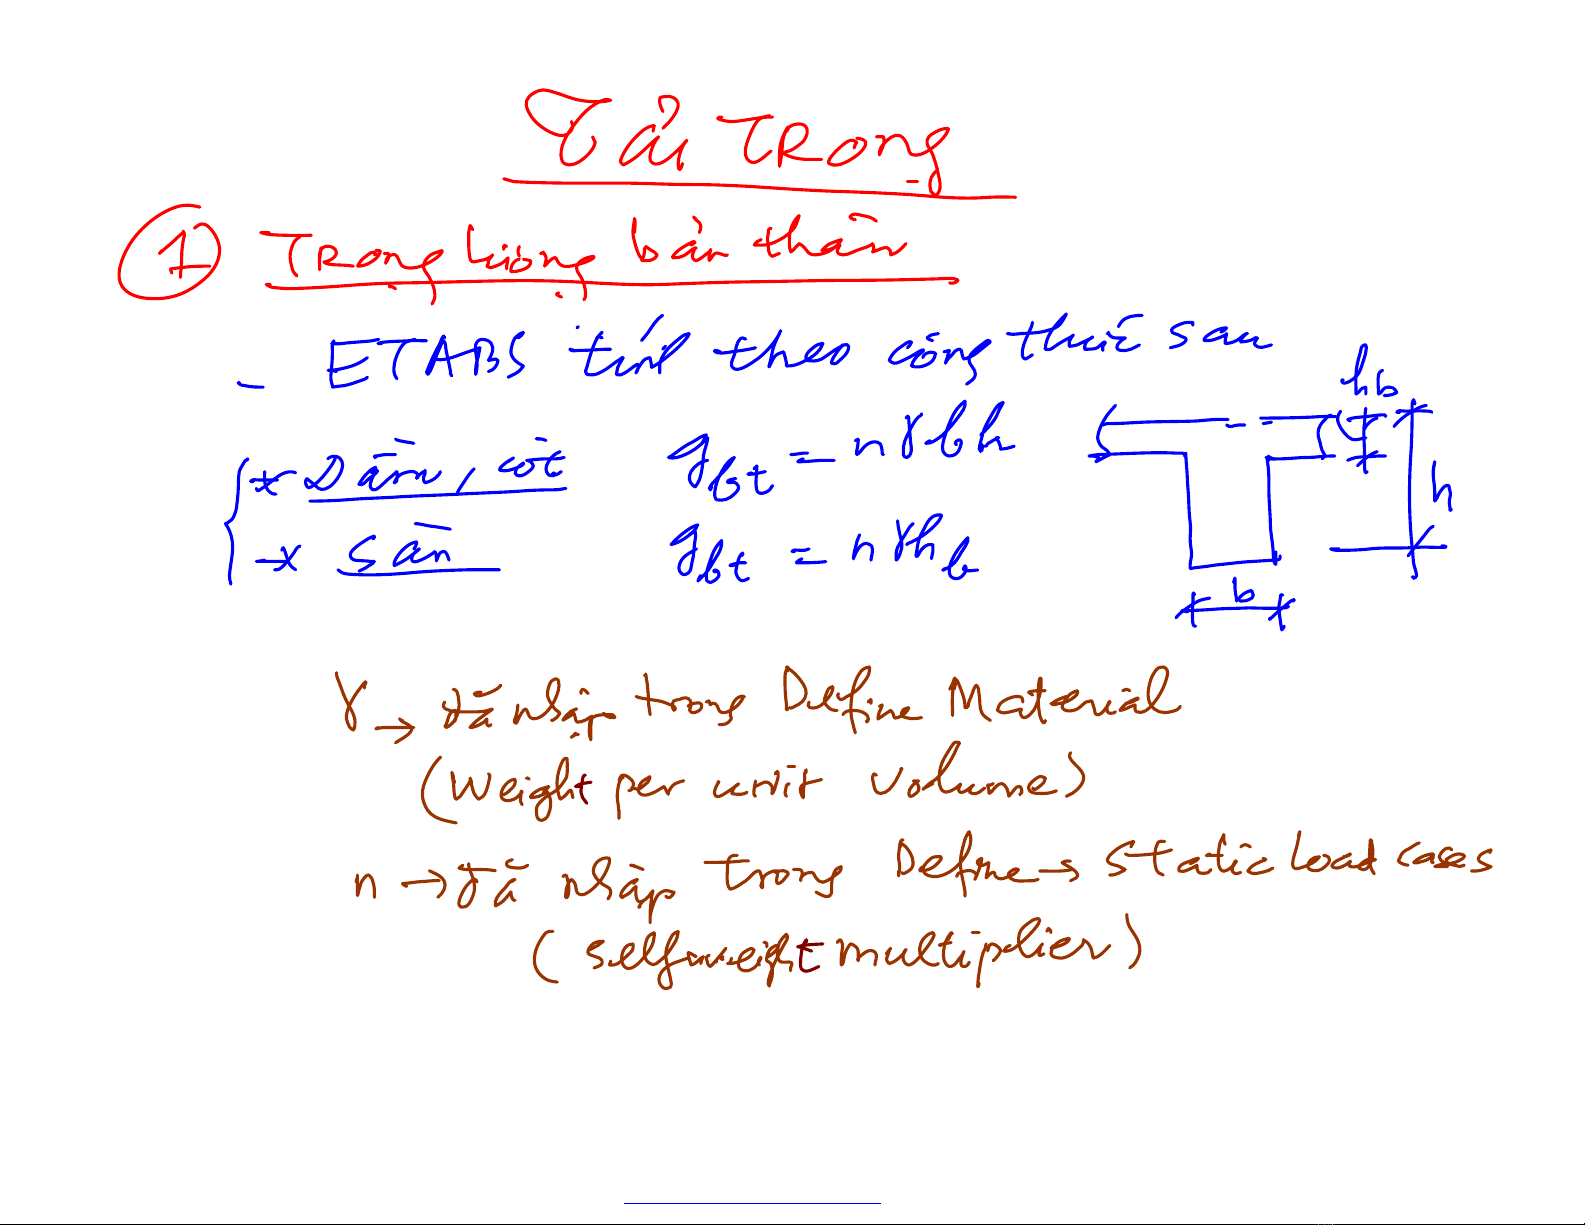 Tải Trọng
① Trọng lượng bản thân
- ETABS tính theo công thức sau
* Dầm, cột g_bt = nγbh
* Sàn g_bt = nγh_b
h_b
h
b
γ → đã nhập trong Define Material
(Weight per unit volume)
n → đã nhập trong Define → Static Load cases
(selfweight multiplier)